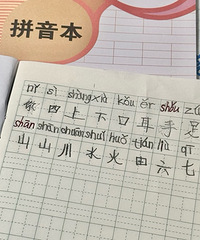 拼音本
nǐ sì shàng xià kǒu ěr shǒu
四 上 下 口 耳 手 足
shān shān shuǐ huǒ tián liù qī
山 山 川 水 火 由 六 七